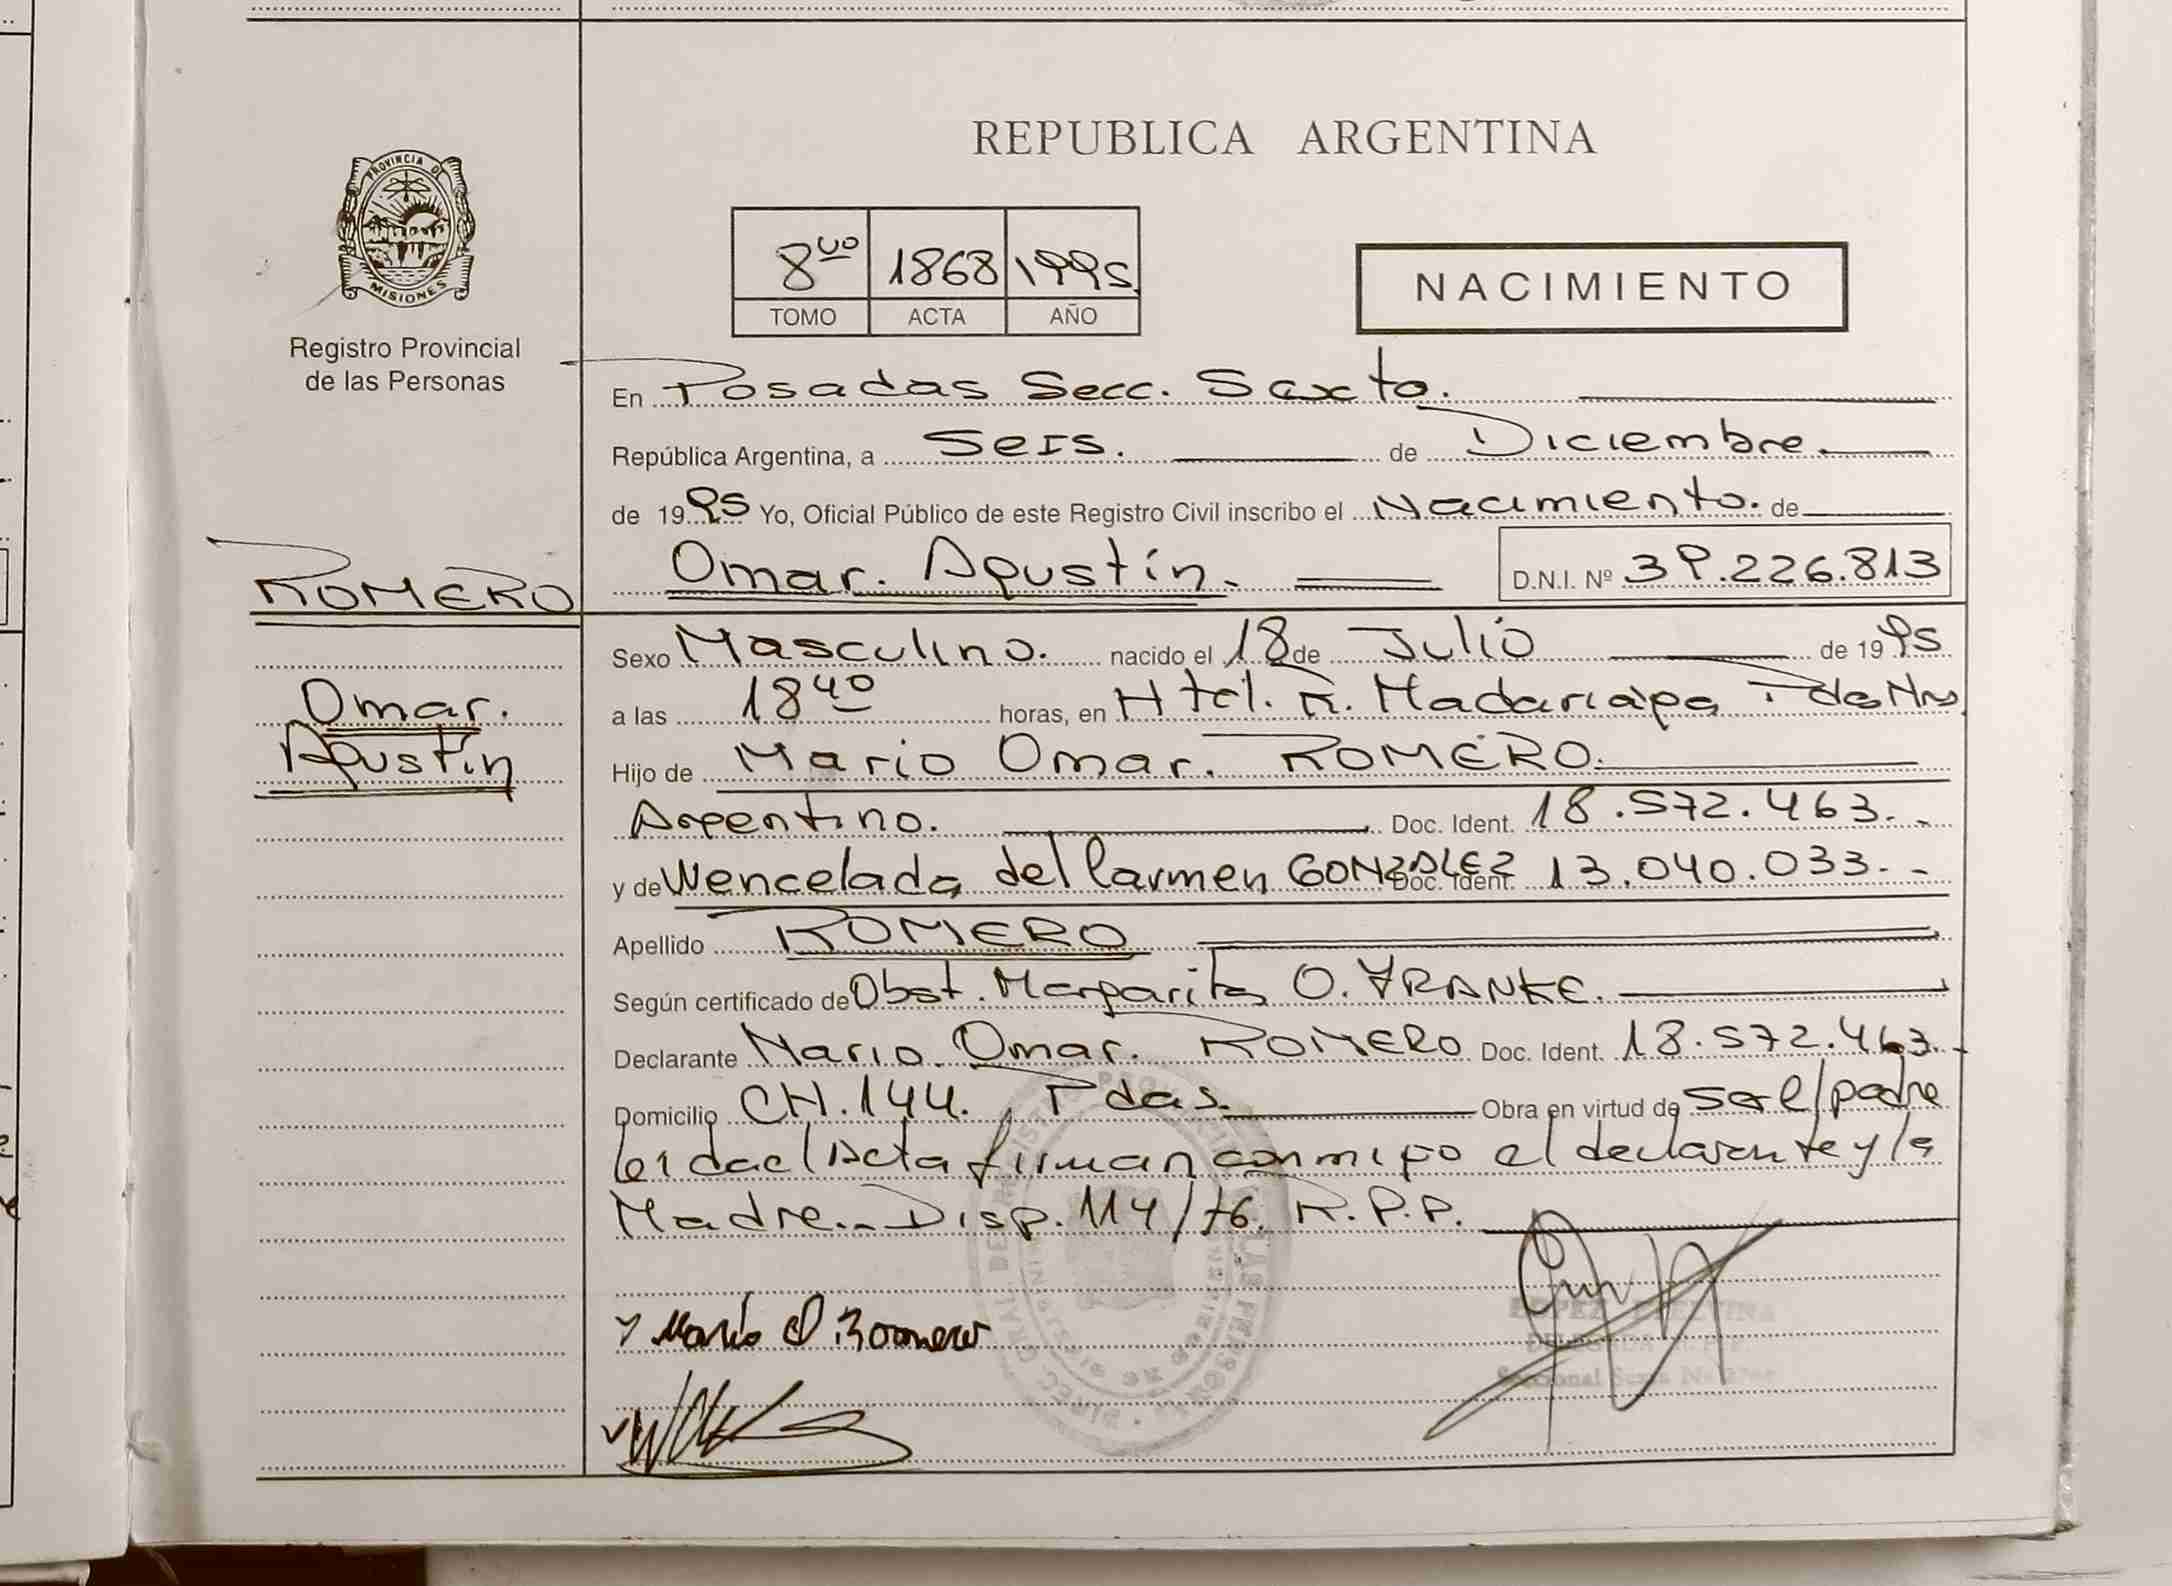 PROVINCIA DE
MISIONES
Registro Provincial
de las Personas
ROMERO
Omar.
Agustín
REPUBLICA ARGENTINA
8vo 1868 1995
TOMO ACTA AÑO
NACIMIENTO
En Posadas Secc. Sexta.
República Argentina, a Seis. de Diciembre.
de 1995 Yo, Oficial Público de este Registro Civil inscribo el Nacimiento. de
Omar. Agustín. D.N.I. Nº 39.226.813
Sexo Masculino. nacido el 18 de Julio de 1995
a las 18 40 horas, en Htal. R. Madariaga Pdas Mnes
Hijo de Mario Omar. ROMERO.
Argentino. Doc. Ident. 18.572.463.-
y de Wencelada del Carmen GONZALEZ Doc. Ident. 13.040.033.-
Apellido ROMERO
Según certificado de Obst. Margarita O. FRANKE.
Declarante Mario Omar. ROMERO Doc. Ident. 18.572.463.-
Domicilio CH.144. Pdas. Obra en virtud de ser el padre
leida el Acta firman conmigo el declarante y la
Madre.- Disp. 114/76. R.P.P.
Mario O Romero
LOPEZ
DELEGADA
Seccional Sexta